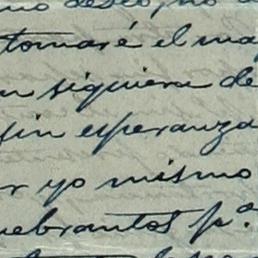 deseo, no
tomaré el ma
n siquiera de
fin esperanza
r yo mismo
uebrantos p.ª